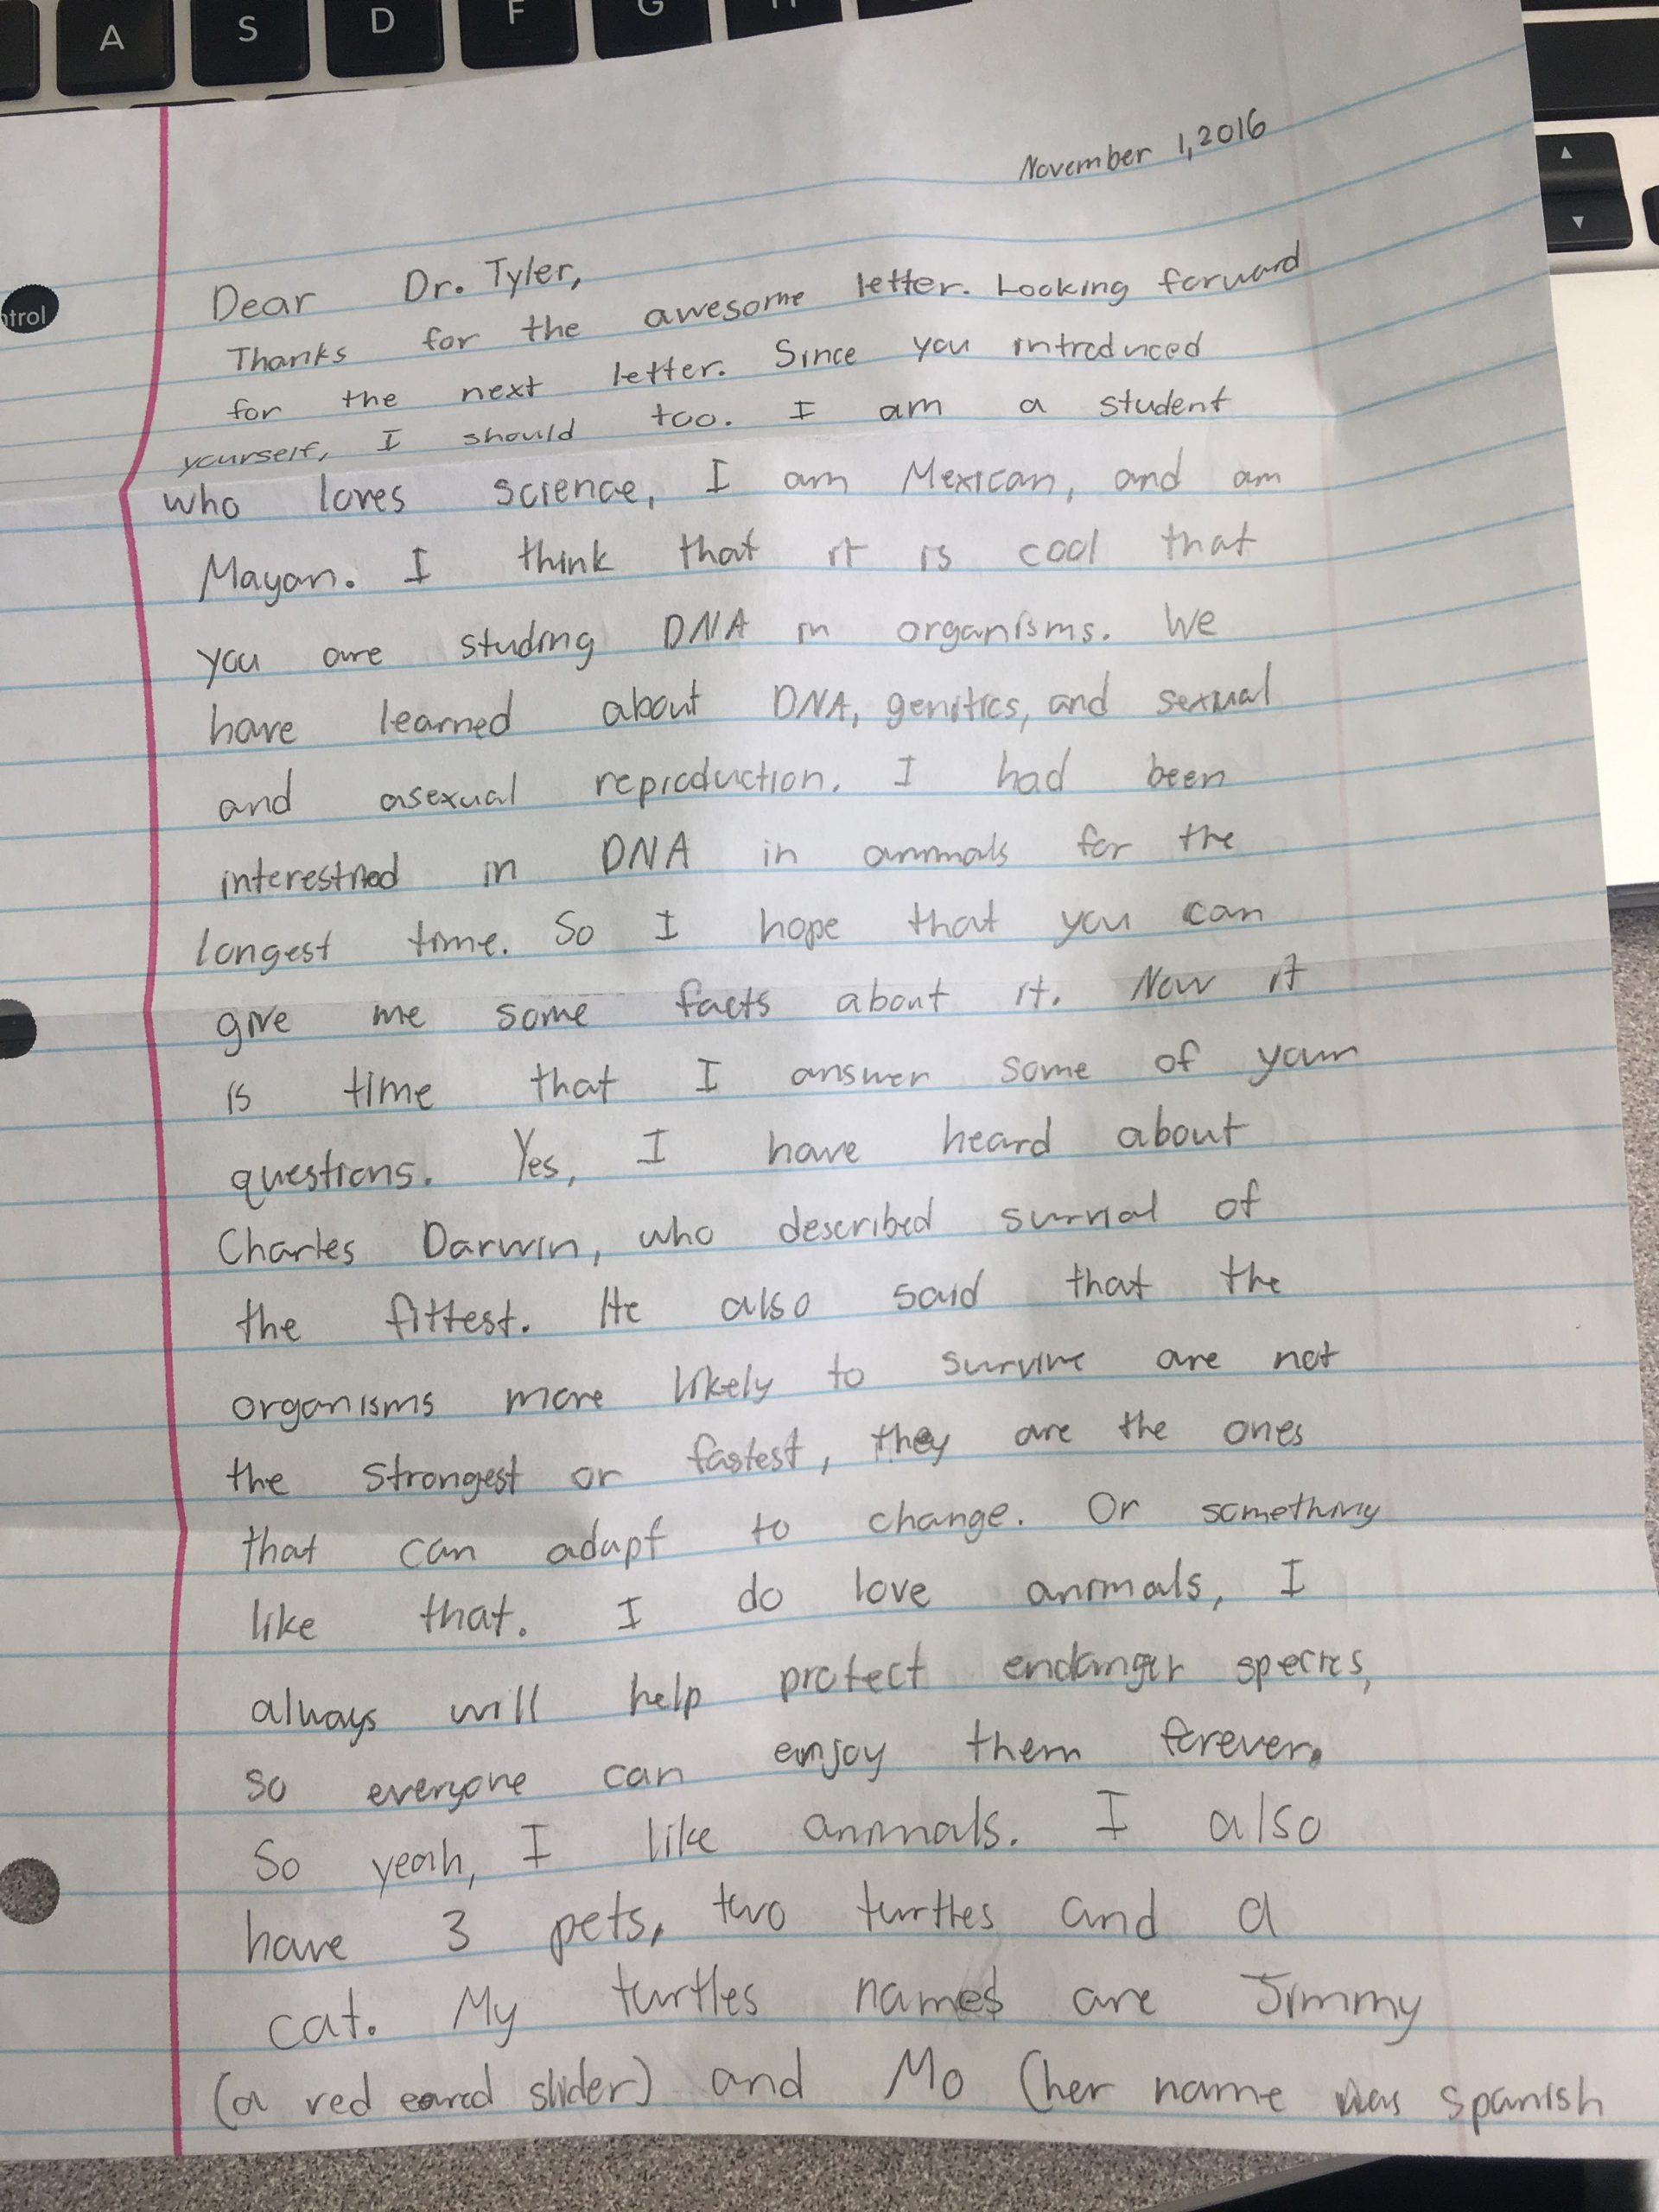 A S D F G H
ntrol
▲
▼
November 1, 2016
Dear Dr. Tyler,
Thanks for the awesome letter. Looking forward
for the next letter. Since you introduced
yourself, I should too. I am a student
who loves science, I am Mexican, and am
Mayan. I think that it is cool that
you are studing DNA in organisms. We
have learned about DNA, genitics, and sexual
and asexual reproduction. I had been
interestned in DNA in animals for the
longest time. So I hope that you can
give me some facts about it. Now it
is time that I answer some of your
questions. Yes, I have heard about
Charles Darwin, who described survial of
the fittest. He also said that the
organisms more likely to survive are not
the strongest or fastest, they are the ones
that can adapt to change. Or something
like that. I do love animals, I
always will help protect endanger species,
so everyone can enjoy them forever.
So yeah, I like animals. I also
have 3 pets, two turtles and a
cat. My turtles names are Jimmy
(a red eared slider) and Mo (her name was spanish